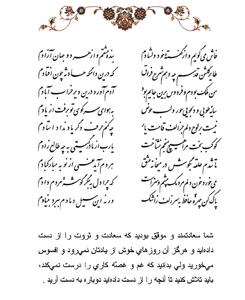 فاش می گویم و از گفتهٔ خود دلشادم
بندهٔ عشقم و از هر دو جهان آزادم
طایر گلشن قدسم چه دهم شرح فراق
که درین دامگه حادثه چون افتادم
من ملک بودم و فردوس برین جایم بود
آدم آورد درین دیر خراب آبادم
سایهٔ طوبی و دلجویی حور و لب حوض
به هوای سر کوی تو برفت از یادم
نیست بر لوح دلم جز الف قامت یار
چه کنم حرف دگر یاد نداد استادم
کوکب بخت مرا هیچ منجم نشناخت
یارب از مادر گیتی به چه طالع زادم
تا شدم حلقه بگوش در میخانهٔ عشق
هر دم آید غمی از نو به مبارکبادم
می خورد خون دلم مردمک چشم و سزاست
که چرا دل به جگر گوشهٔ مردم دادم
پاک کن چهرهٔ حافظ به سر زلف ز اشک
ور نه این سیل دمادم ببرد بنیادم
شما سعادتمند و موفق بودید که سعادت و ثروت را از دست
داده‌اید و هرگز آن روزهای خوش از یادتان نمی‌رود و افسوس
می‌خورید ولی بدانید که غم و غصّه کاری را درست نمی‌کند،
باید تلاش کنید تا آنچه را از دست داده‌اید دوباره به دست آرید .